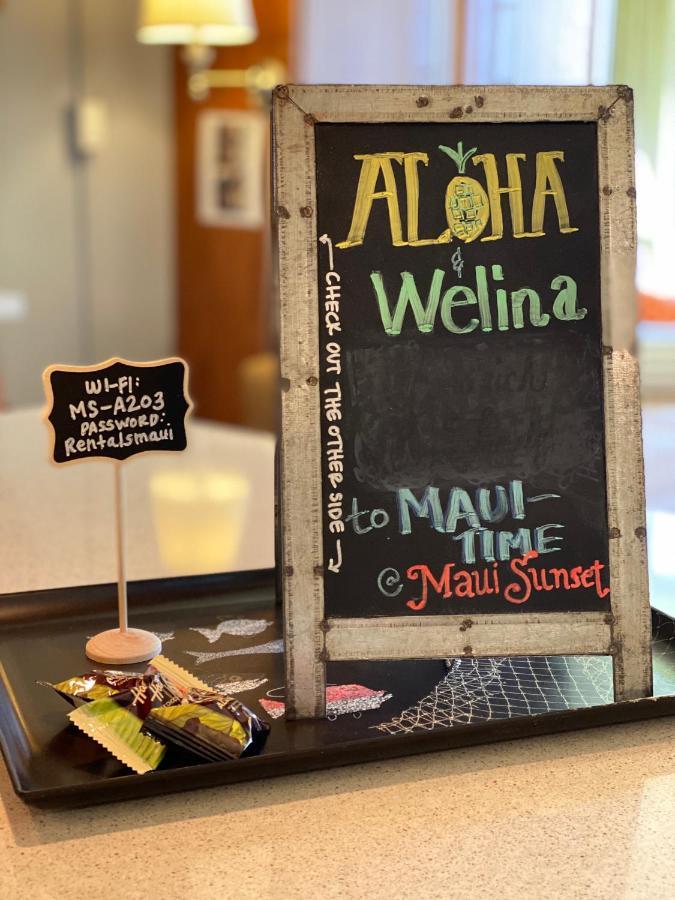 ALOHA
&
Welina
to MAUI-
TIME
@ Maui Sunset
CHECK OUT THE OTHER SIDE
WI-FI:
MS-A203
PASSWORD:
Rentalsmaui